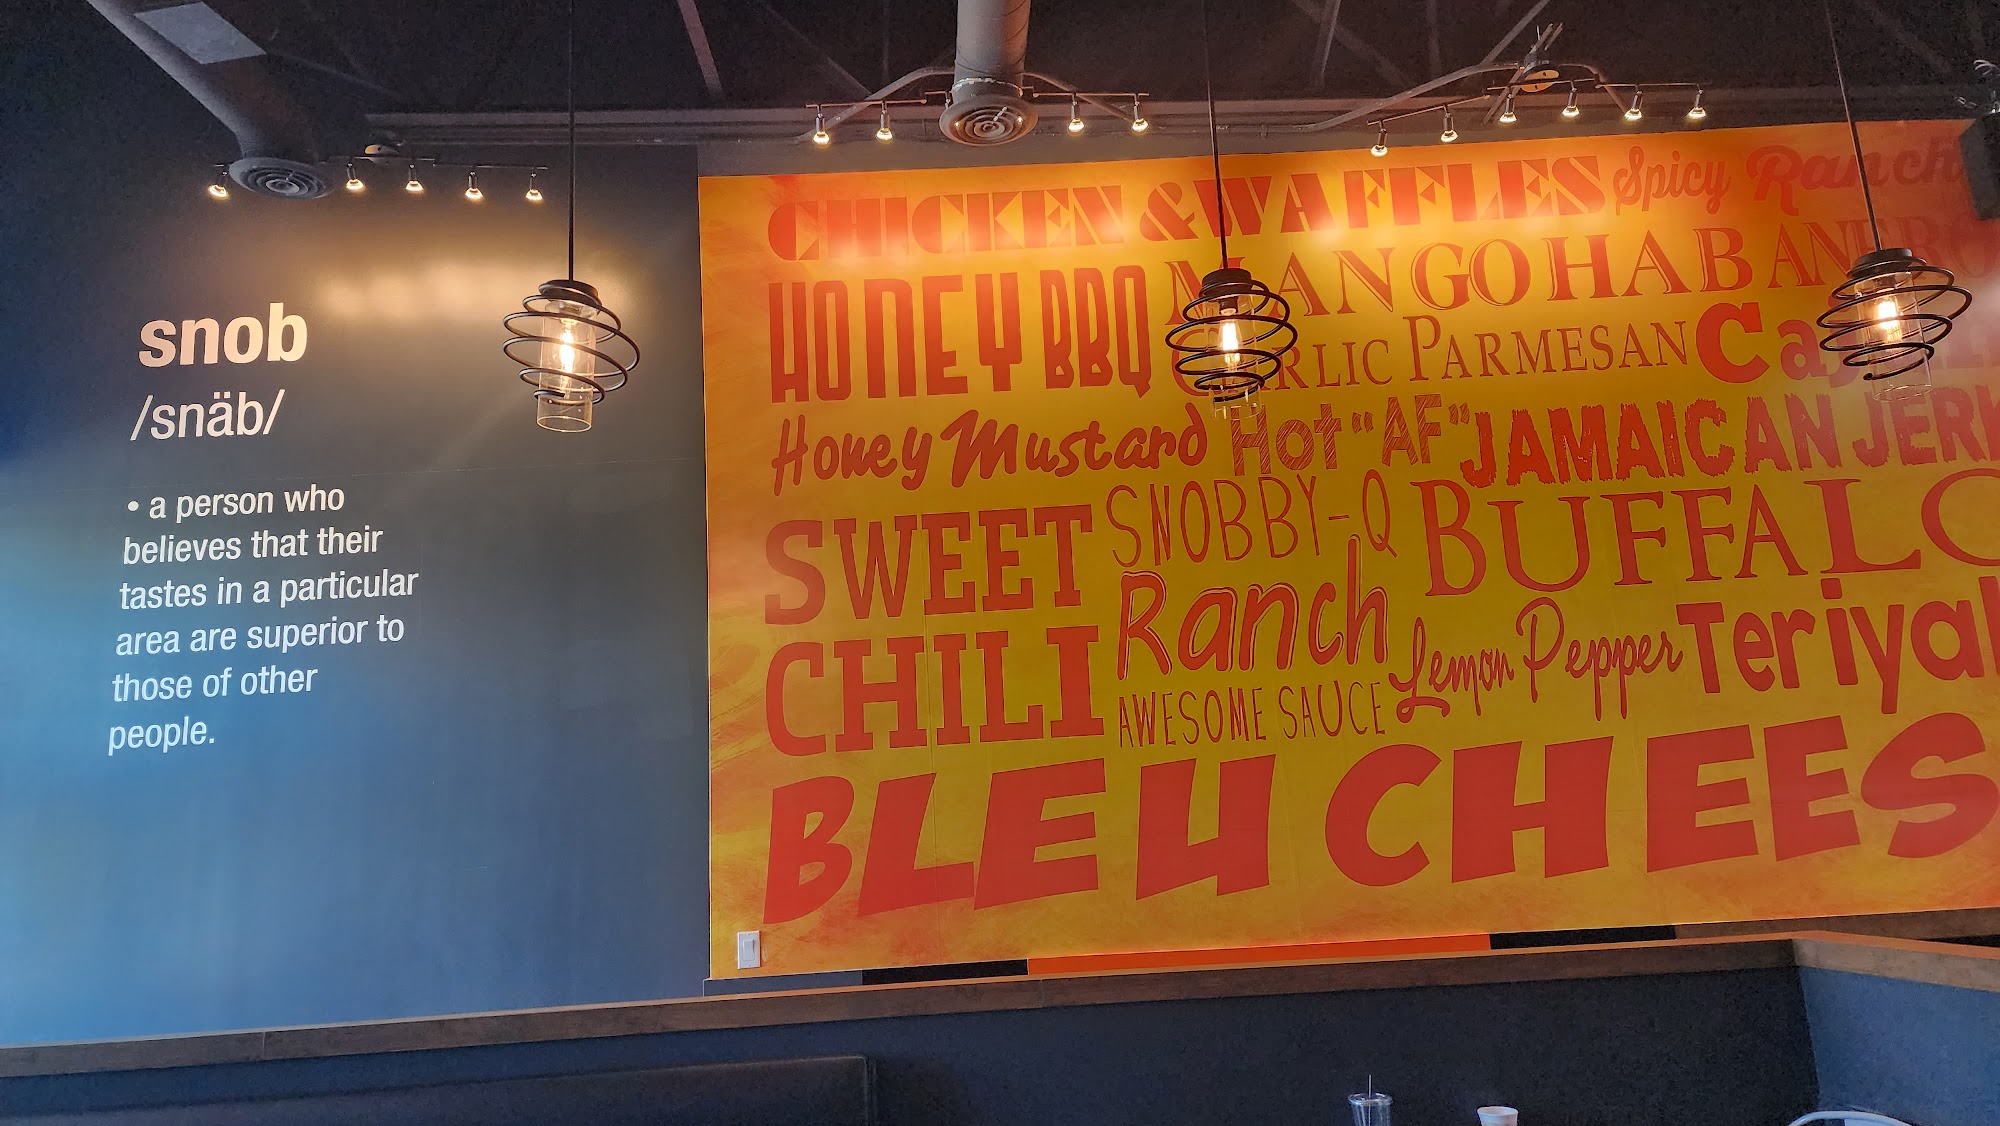 snob
/snäb/
• a person who
believes that their
tastes in a particular
area are superior to
those of other
people.
CHICKEN & WAFFLES Spicy Ranch
HONEY BBQ MANGO HABANERO
GARLIC PARMESAN
Honey Mustard Hot "AF" JAMAICAN JERK
SWEET CHILI
SNOBBY-Q BUFFALO
Ranch
AWESOME SAUCE Lemon Pepper
BLEU CHEES